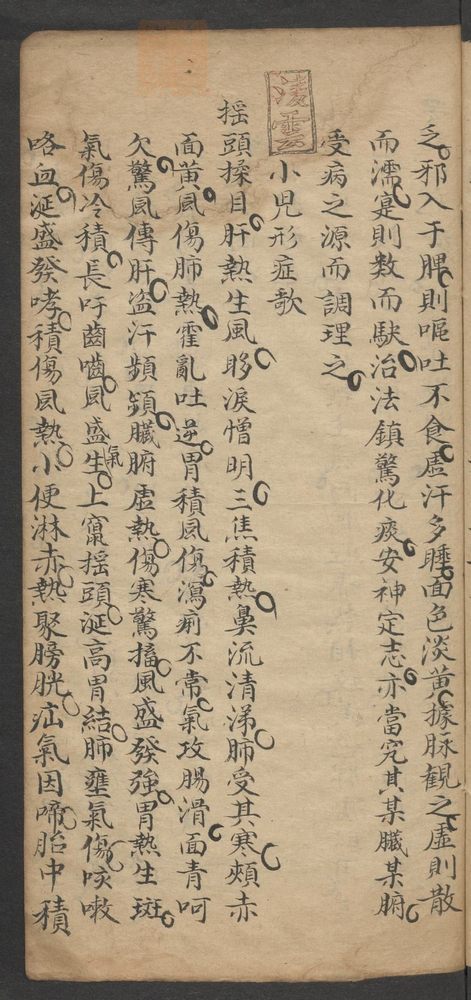 乏邪入于脾則嘔吐不食虛汗多睡面色淡黄據脉観之虛則散
而濡寔則数而駃治法鎮驚化痰安神定志亦當究其某臟某腑
受病之源而調理之
小児形症歌
揺頭揉目肝熱生風眵淚憎明三焦積熱鼻流清涕肺受其寒頰赤
面黄風傷肺熱霍亂吐逆胃積風傷瀉痢不常氣攻腸滑面青呵
欠驚風傳肝盗汗頻頻臟腑虛熱傷寒驚搐風盛發強胃熱生斑
氣傷冷積長吁齒嚙風盛生氣上竄揺頭涎高胃結肺壅氣傷咳嗽
咯血涎盛發哮積傷風熱小便淋赤熱聚膀胱疝氣因啼胎中積